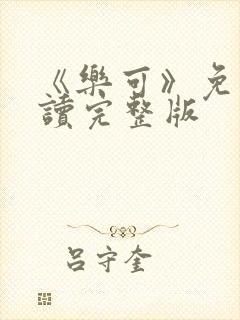 《樂可》免
讀完整版
吕守奎